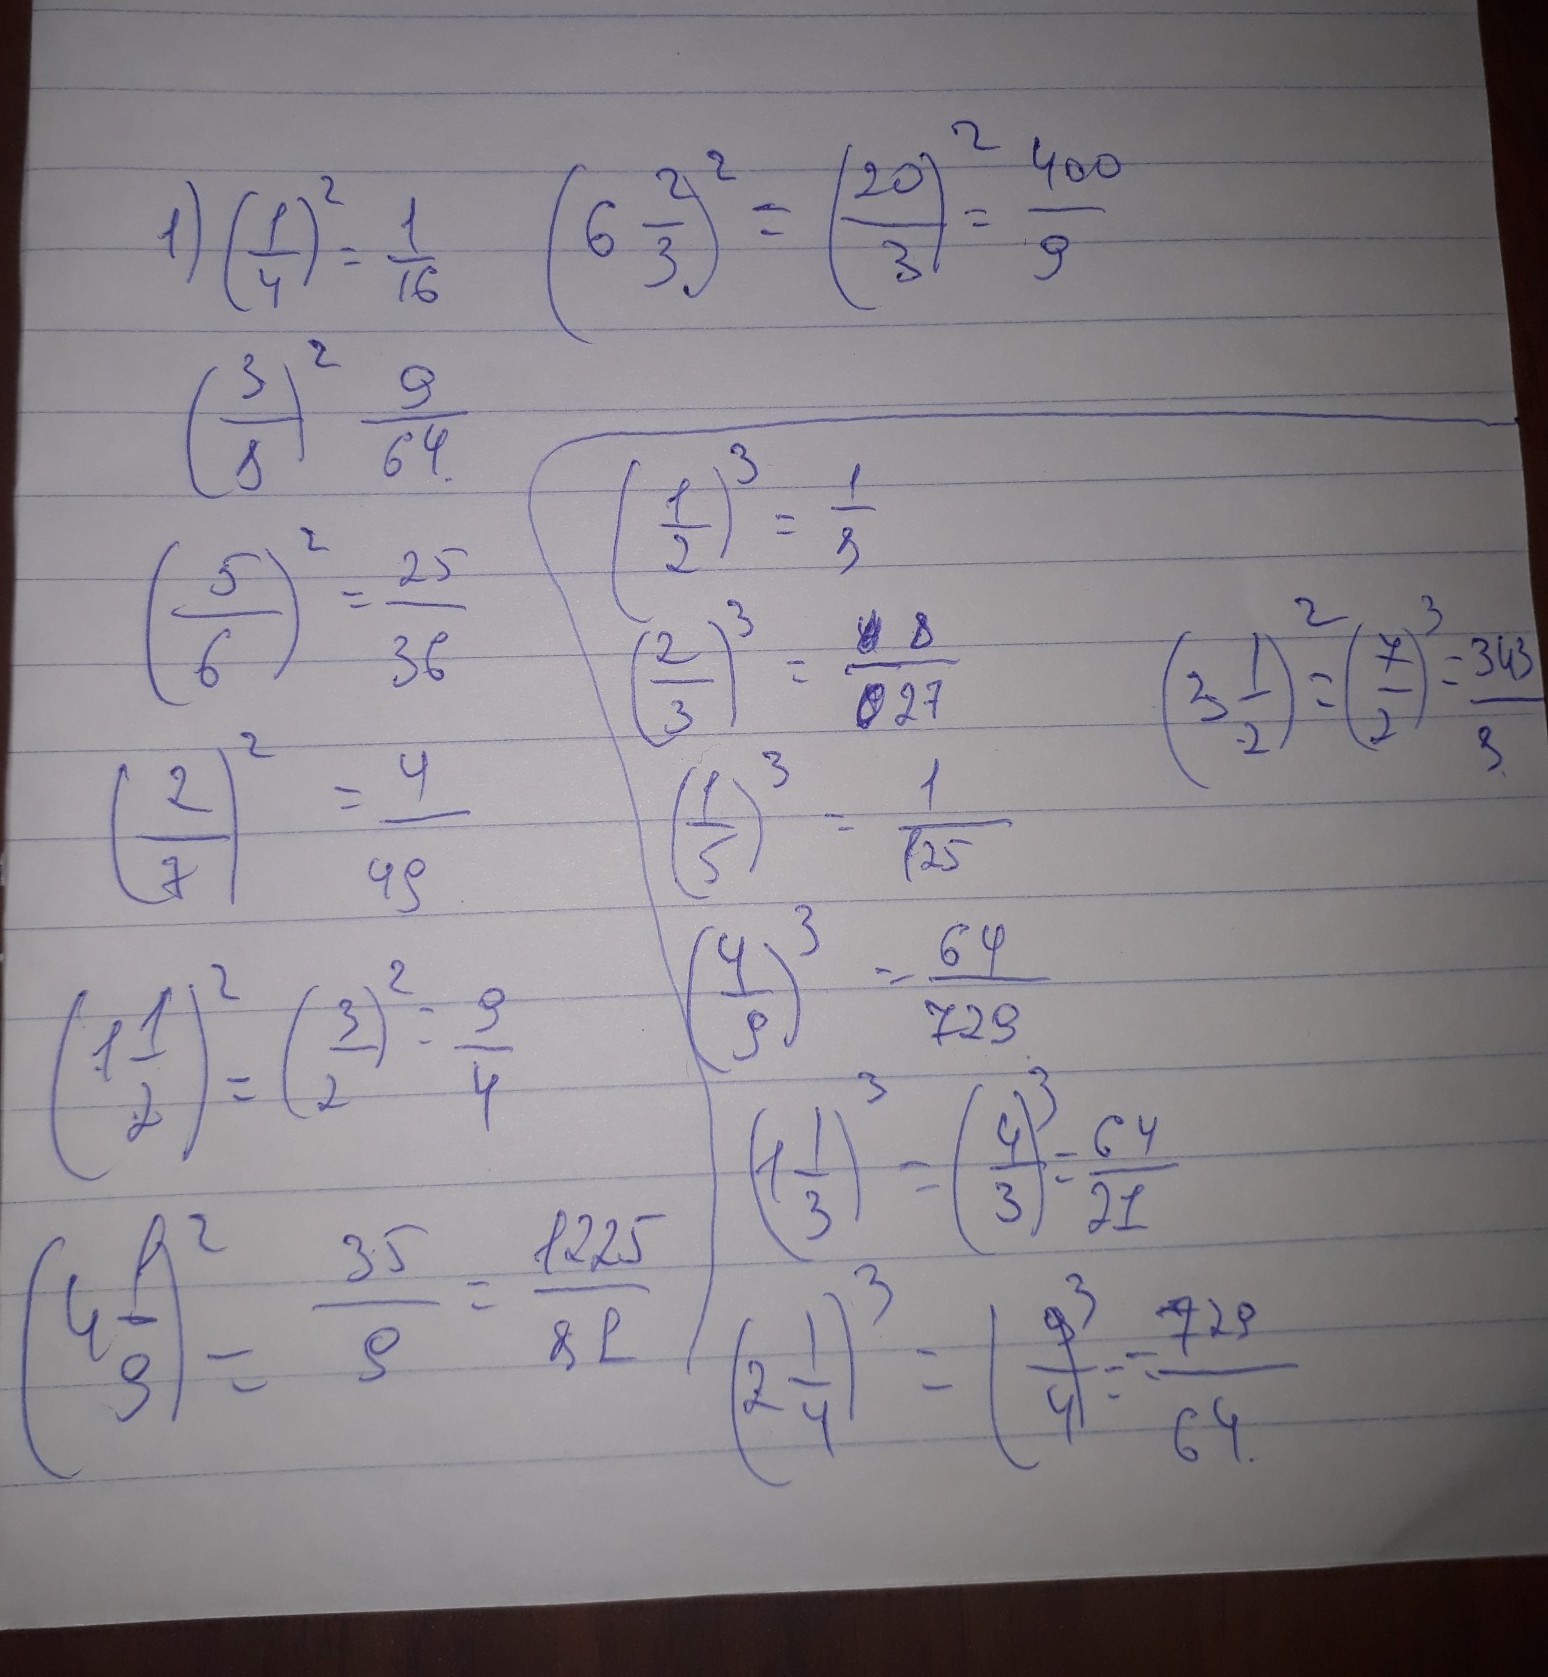 1) (1/4)² = 1/16
(3/8)² 9/64.
(5/6)² = 25/36
(2/7)² = 4/49
(1 1/2)² = (3/2)² = 9/4
(4 1/9)² = 35/9 = 1225/81
(6 2/3)² = (20/3)² = 400/9
(1/2)³ = 1/8
(2/3)³ = 8/27
(1/5)³ = 1/125
(4/9)³ = 64/729
(1 1/3)³ = (4/3)³ = 64/21
(2 1/4)³ = (9/4)³ = 729/64.
(3 1/2)² = (7/2)³ = 343/8